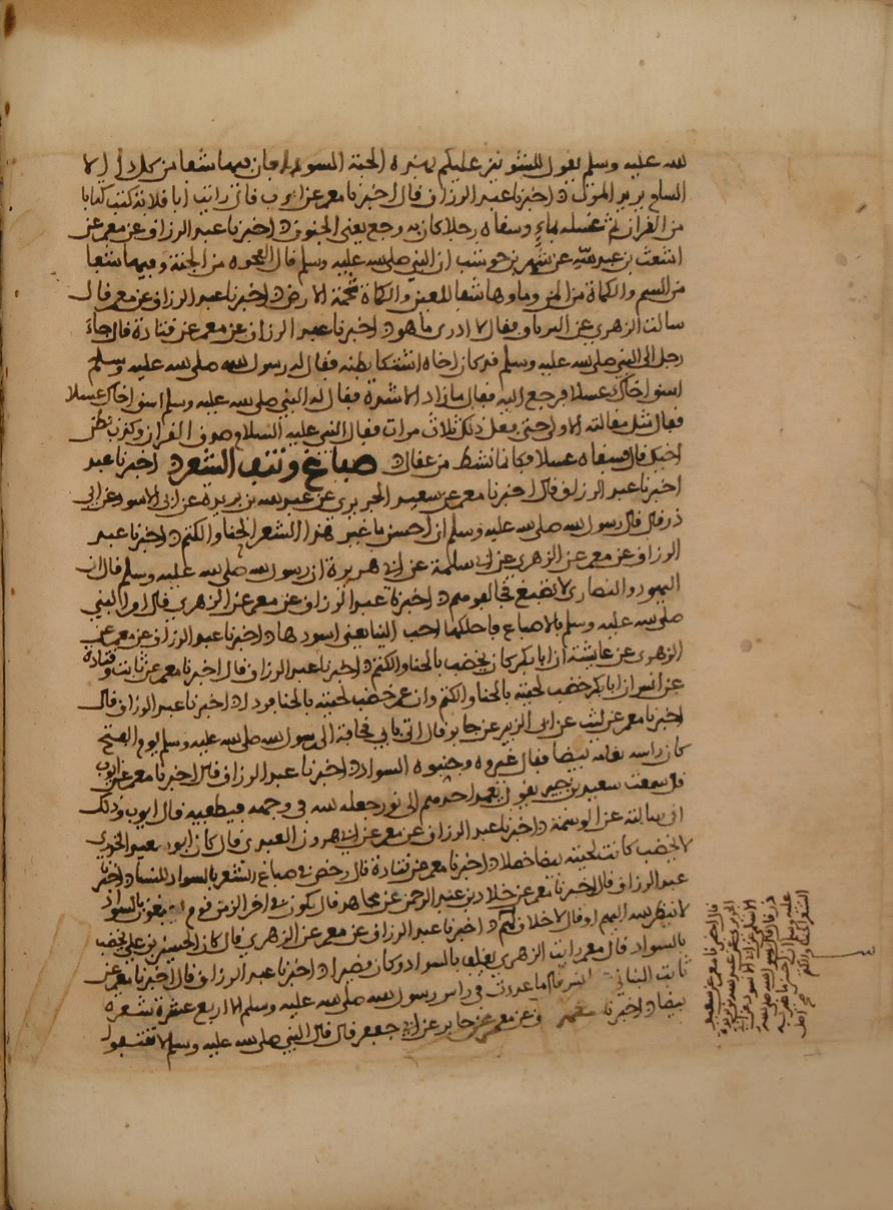 لله عليه وسلم يقول للشونيز عليكم بهذه الحبة السوداء فان فيها شفا من كل دا الا
السام يريد الموت اخبرنا عبد الرزاق قال اخبرنا معمر عن ايوب قال رايت ابا قلابة كتب كتابا
من القران ثم غسله بماء وسقاه رجلا كان به وجع يعني الجنون اخبرنا عبد الرزاق عن معمر عن
اشعث بن عبد الله عن شهر بن حوشب ان النبي صلى الله عليه وسلم قال العجوة من الجنة وفيها شفا
من السم والكماة من المن وماوها شفا للعين والكماة شحمة الارض اخبرنا عبد الرزاق عن معمر قال
سالت الزهري عن الترياق فقال لا ادري ما هو اخبرنا عبد الرزاق عن معمر عن قتادة قال جاء
رجل الى النبي صلى الله عليه وسلم فذكر ان اخاه اشتكا بطنه فقال له رسول الله صلى الله عليه وسلم
اسق اخاك عسلا فرجع اليه فقال ما زاد الا شدة فقال له النبي صلى الله عليه وسلم اسق اخاك عسلا
فقال مثل مقالته الاولى حتى فعل ذلك ثلاث مرات فقال النبي عليه السلام صدق القران وكذب بطن
اخيك قال فسقاه عسلا فكانما نشط من عقال صباغ ونتف الشعر اخبرنا عبد
اخبرنا عبد الرزاق قال اخبرنا معمر عن سعيد الجريري عن عبد الله بن بريدة عن ابي الاسود عن ابي
ذر قال قال رسول الله صلى الله عليه وسلم ان احسن ما غير هذا الشعر الحنا والكتم اخبرنا عبد
الرزاق عن معمر عن الزهري عن ابي سلمة عن ابي هريرة ان رسول الله صلى الله عليه وسلم قال ان
اليهود والنصارى لا تصبغ فخالفوهم اخبرنا عبد الرزاق عن معمر عن الزهري قال امر النبي
صلى الله عليه وسلم بالاصباغ فاحلكها احب الينا يعني اسودها اخبرنا عبد الرزاق عن معمر عن
الزهري عن عايشة ان ابا بكر كان يخضب بالحنا والكتم اخبرنا عبد الرزاق قال اخبرنا معمر عن ثابت وقتادة
عن انس ان ابا بكر خضب لحيته بالحنا والكتم وان عمر خضب لحيته بالحنا فردا اخبرنا عبد الرزاق قال
اخبرنا معمر عن ليث عن ابي الزبير عن جابر قال اتي بابي قحافة الى رسول الله صلى الله عليه وسلم يوم الفتح
كان راسه ثغامة بيضا فقال غيروه وجنبوه السواد اخبرنا عبد الرزاق قال اخبرنا معمر عن ايوب
قال سمعت سعيد بن جبير يقول يعمد احدكم الى نور جعله الله في وجهه فيطفيه قال ايوب وذلك
اني سالته عن الوسمة اخبرنا عبد الرزاق عن معمر عن ابي هرون العبدي قال كان ابو سعيد الخدري
لا يخضب كانت لحيته بيضا خصلا اخبرنا معمر عن قتادة قال رخص في صباغ الشعر بالسواد للنسا اخبرنا
عبد الرزاق قال اخبرنا معمر عن خلاد بن عبد الرحمن عن مجاهد قال يكون في اخر الزمن قوم يصبغون بالسواد
لا ينظر الله اليهم او قال لا خلاق لهم اخبرنا عبد الرزاق عن معمر عن الزهري قال كان الحسين بن علي يخضب
بالسواد قال معمر رايت الزهري يغلف بالسواد وكان قصيرا اخبرنا عبد الرزاق قال اخبرنا معمر عن
ثابت البناني انس قال ما عددت في راس رسول الله صلى الله عليه وسلم الا اربع عشرة شعرة
بيضا اخبرنا معمر وعن معمر عن جابر عن ابي جعفر قال قال النبي صلى الله عليه وسلم لا تنتفوا
قال اخبرنا معمر عن سعيد
الجريري عن عبد الله بن بريدة
الاسلمي عن ابي الاسود عن ابي
ذر قال قال رسول الله صلى الله
عليه وسلم ان احسن ما غير به
الشعر الحنا والكتم